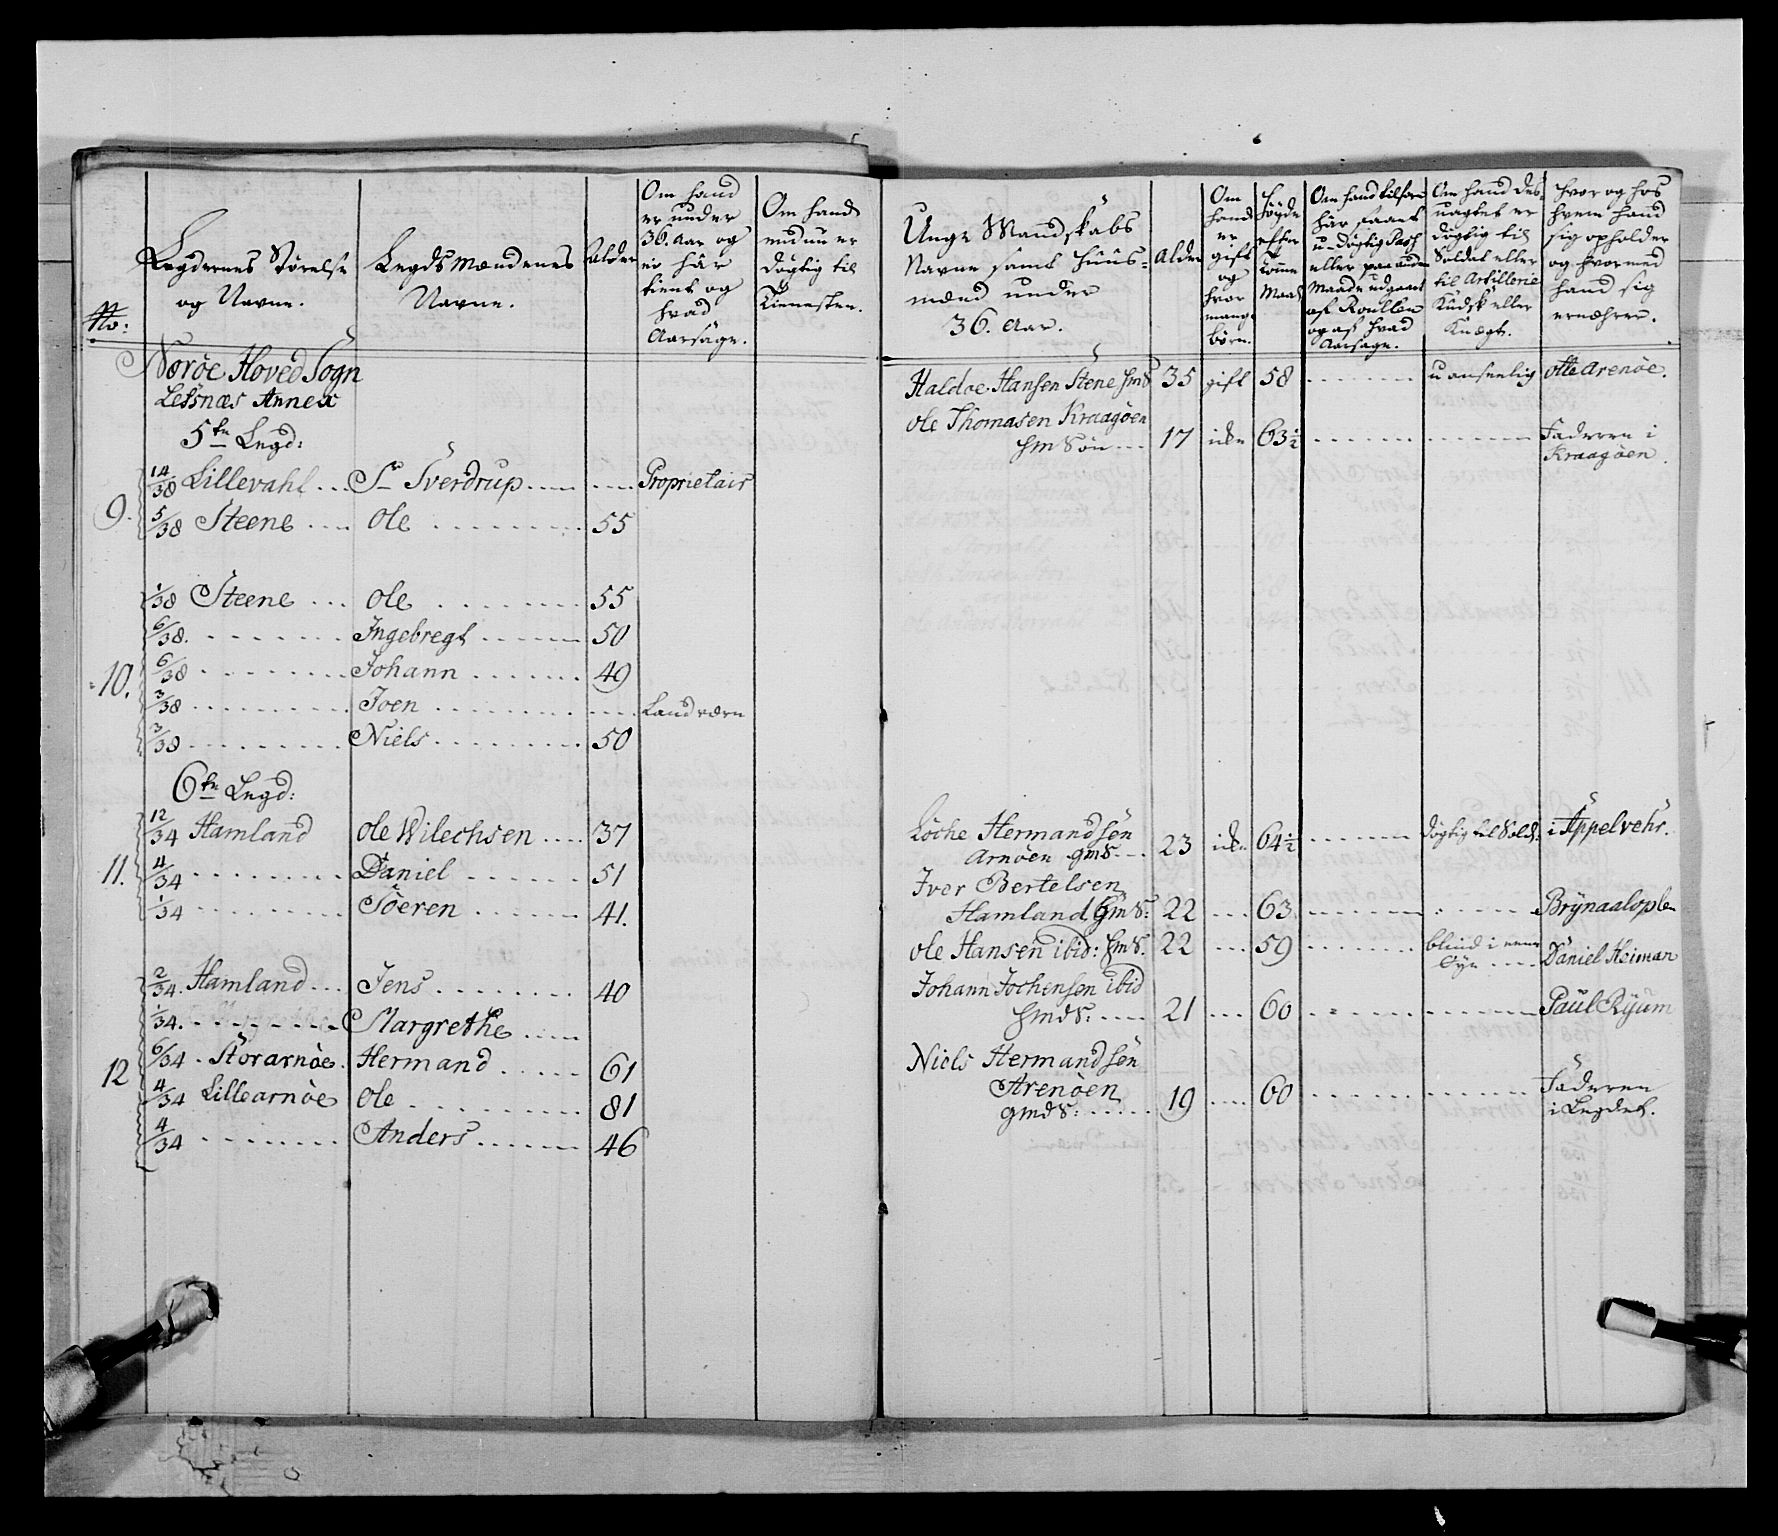 No:
Legdernes Störelse
og Navne.
Legds Mændenes
Navne.
Alder
Om hand
er under
36. Aar og
ei här
tient og
hvad
Aarsage.
Om hand
endnu er
dögtig til
Tienesten.
Nøröe Hoved Sogn
Lesnæs Annex
5te Legd:
14/38 Lillevahl ... Sr Sverdrup ..... .... Proprietair
9. 5/38 Steene .... Ole ........ 55
1/38 Steene ... Ole ........ 55
6/38. ........ Ingebregt ...... 50
10. 6/38 ........ Johann ....... 49
3/38 ........ Joen ........ .... Landværn
3/38 ........ Niels ........ 50
6te Legd:
12/34 Hamland Ole Wilechsen .... 37
11. 4/34 ........ Daniel ...... 51
1/34 ........ Söeren ...... 41.
2/34. Hamland ... Jens ........ 40
1/34. ........ Margrethe ....
6/34 . Storarnöe . Hermand ..... 61
12 4/34 Lillearnöe Ole ........ 81
4/34 ........ Anders ...... 46
Unge Mandskabs
Navne samt Huus-
mænd under
36. Aar.
Alder
Om
hand
er
gift
og
hvor
mange
börn.
Höyde
efter
Maal
Om hand tilforn
här faaet
u-dögtig Pass
eller paa anden
Maade udgaaet
af Roullen
og af hvad
Aarsage.
Om hand des-
uagtet er
dögtig til
Soldat eller
til Artillerie
Kudsk eller
Knægt.
Hvor og hos
hvem hand
sig opholder
og hvormed
hand sig
ernæhrer.
Haldoe Hansen Stene HmS 35 gift 58 ...... uanseelig Otte Arenöe.
Ole Thomasen Kraagöen
Hm Sön ... 17 icke 63½ ...... ...... Faderen i
Kraagöen.
Hermandsön
Arnöen GmS. .. 23 icke 64½ ...... dögtig til Sold: i Appelvehr.
Iver Bertelsen
Hamland GmS: 22 ... 63 ...... ..... Brynaalople
Ole Hansen ibid: HmS. 22 ... 59 ...... blind i eene
Öye .... Daniel Heiman
Johann Jochensen ibid
HmdS: .... 21 ... 60 ...... ...... Paul Ryum
Niels Hermandsön
Arenöen
GmdS: ..... 19 ... 60 ...... ...... Faderen
i Legdet.